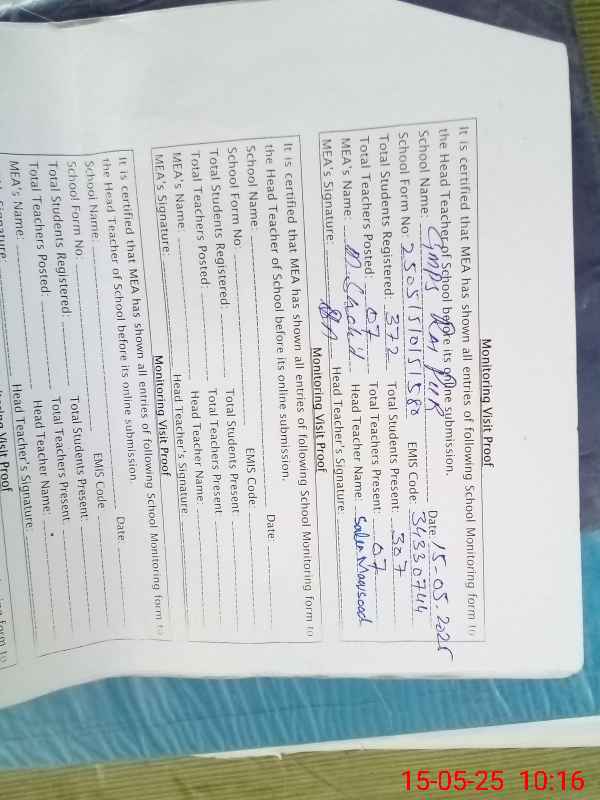 Monitoring Visit Proof
It is certified that MEA has shown all entries of following School Monitoring form to
the Head Teacher of School before its online submission.
School Name: GMPS RAJ PUR Date 15-05-2025
School Form No: 2505151051580 EMIS Code: 34330744
Total Students Registered: 372 Total Students Present: 307
Total Teachers Posted: 07 Total Teachers Present: 07
MEA's Name: Head Teacher Name
MEA's Signature: Head Teacher's Signature:
Monitoring Visit Proof
It is certified that MEA has shown all entries of following School Monitoring form to
the Head Teacher of School before its online submission.
School Name: Date:
School Form No: EMIS Code:
Total Students Registered: Total Students Present:
Total Teachers Posted: Total Teachers Present:
MEA's Name: Head Teacher Name:
MEA's Signature: Head Teacher's Signature
Monitoring Visit Proof
It is certified that MEA has shown all entries of following School Monitoring form to
the Head Teacher of School before its online submission.
School Name: Date:
School Form No: EMIS Code
Total Students Registered: Total Students Present:
Total Teachers Posted: Total Teachers Present:
MEA's Name: Head Teacher Name:
MEA's Signature: Head Teacher's Signature
Visit Proof
form to
15-05-25 10:16